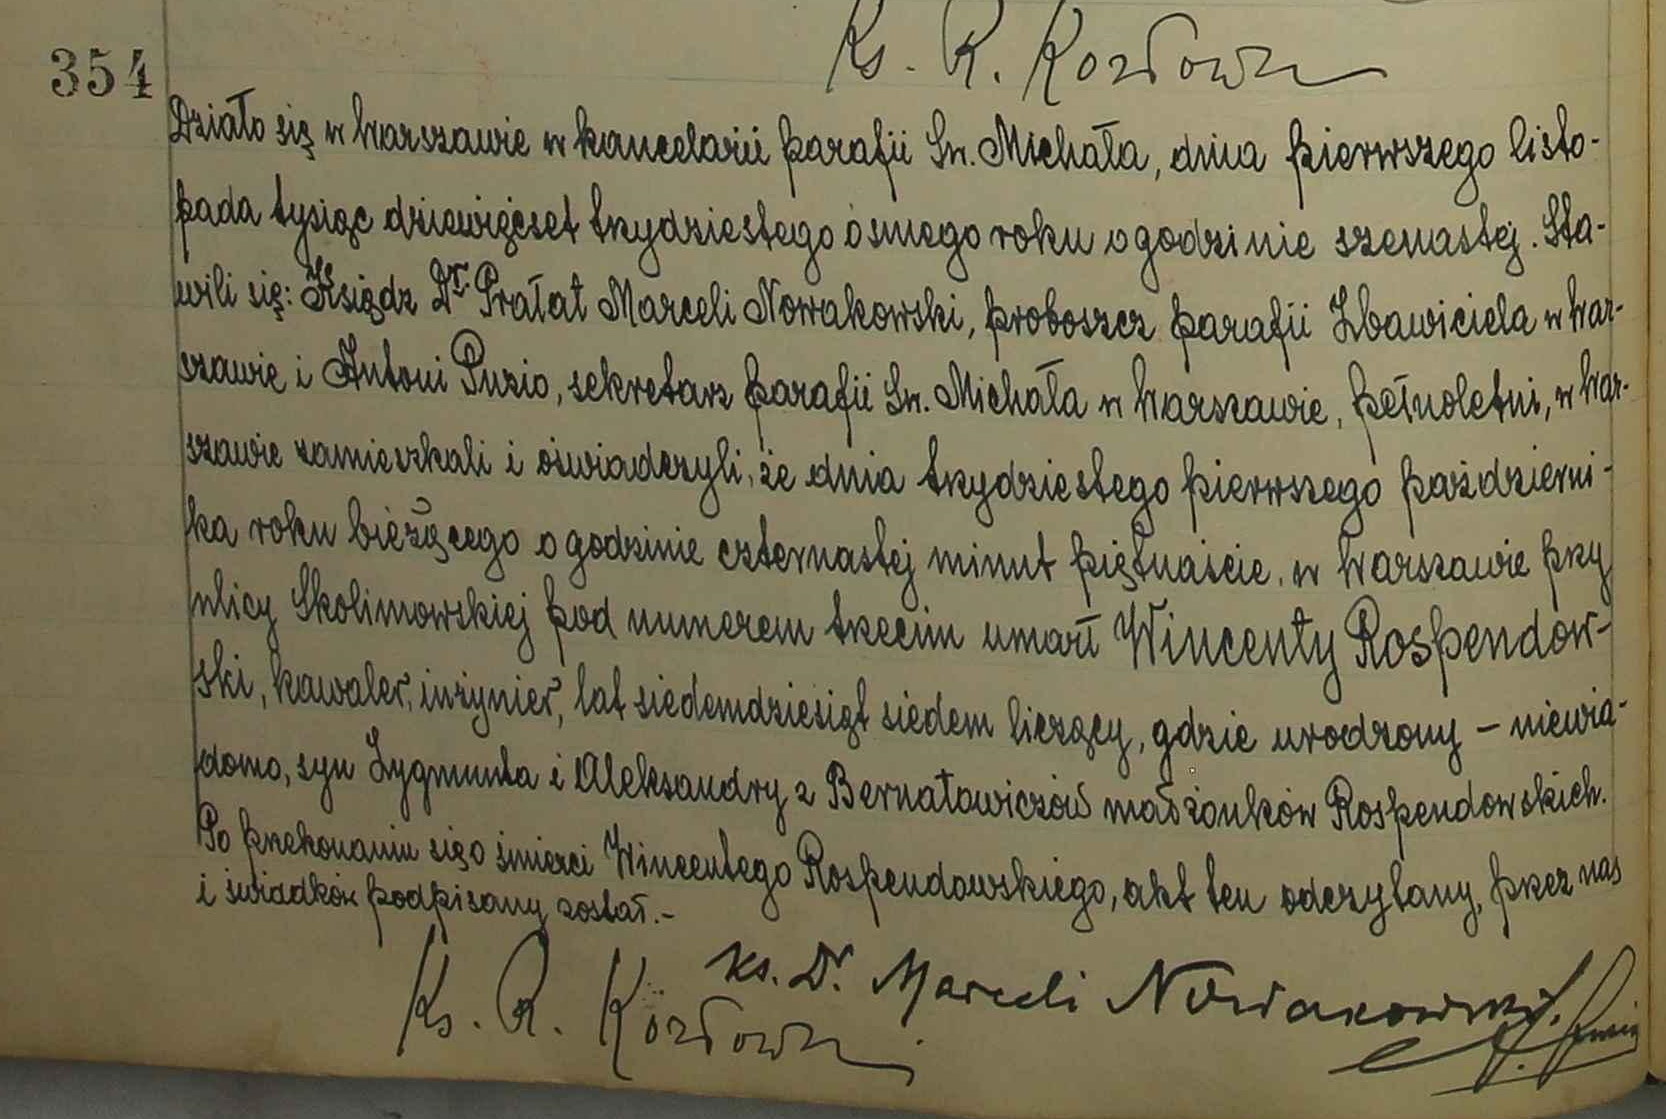 Ks. R. Kozłowski
354
Działo się w Warszawie w kancelarii parafii Św. Michała, dnia pierwszego listo-
pada tysiąc dziewięćset trzydziestego ósmego roku o godzinie szesnastej. Sta-
wili się: Ksiądz Dr. Prałat Marceli Nowakowski, proboszcz parafii Zbawiciela w War-
szawie i Antoni Puzio, sekretarz parafii Św. Michała w Warszawie, pełnoletni, w War-
szawie zamieszkali i oświadczyli, że dnia trzydziestego pierwszego październi-
ka roku bieżącego o godzinie czternastej minut piętnaście, w Warszawie przy
ulicy Skolimowskiej pod numerem trzecim umarł Wincenty Rospendow-
ski, kawaler, inżynier, lat siedemdziesiąt siedem liczący, gdzie urodzony – niewia-
domo, syn Zygmunta i Aleksandry z Bernatowiczów małżonków Rospendowskich.
Po przekonaniu się o śmierci Wincentego Rospendowskiego, akt ten odczytany, przez nas
i świadków podpisany został.–
Ks. Dr. Marceli Nowakowski.
Ks. R. Kozłowski
A. Puzio